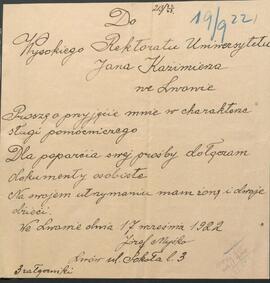 Do
19/9 22
Wysokiego Rektoratu Uniwersytetu
Jana Kazimierza
we Lwowie
Proszę o przyjęcie mnie w charakterze
sługi pomocniczego
Dla poparcia swej prośby dołączam
dokumenty osobiste
Na swojem utrzymaniu mam żonę i dwoje
dzieci.
We Lwowie dnia 17 września 1922
Józef
Lwów ul. Sokoła l. 3
3 załączniki